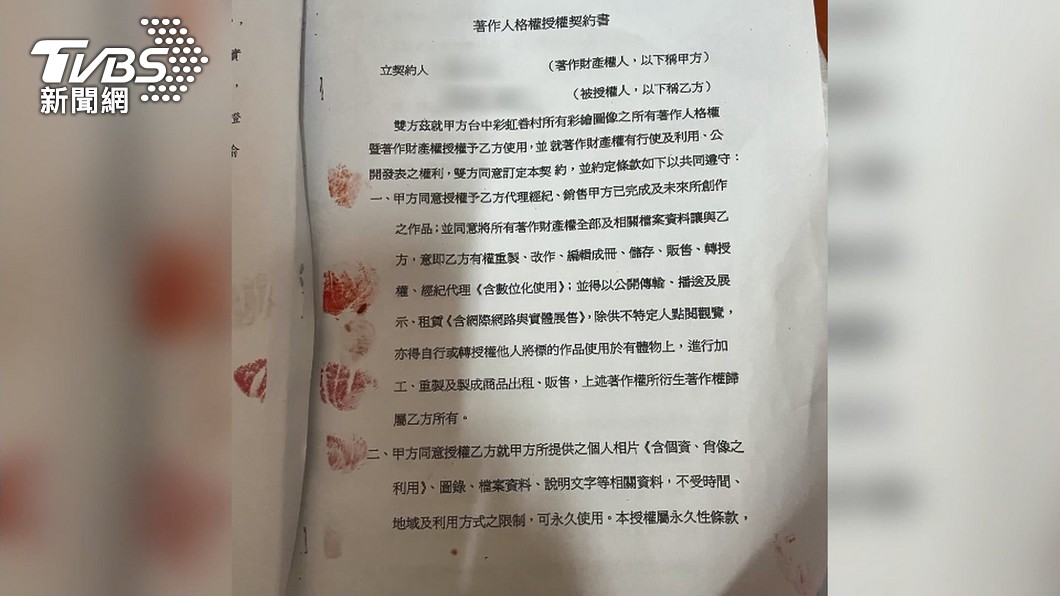 TVBS
新聞網
，
實
，
證
著作人格權授權契約書
立契約人 （著作財產權人，以下稱甲方）
（被授權人，以下稱乙方）
雙方茲就甲方台中彩虹眷村所有彩繪圖像之所有著作人格權
暨著作財產權授權予乙方使用，並 就著作財產權有行使及利用、公
開發表之權利，雙方同意訂定本契 約，並約定條款如下以共同遵守：
一、甲方同意授權予乙方代理經紀、銷售甲方已完成及未來所創作
之作品；並同意將所有著作財產權全部及相關檔案資料讓與乙
方，意即乙方有權重製、改作、編輯成冊、儲存、販售、轉授
權、經紀代理《含數位化使用》；並得以公開傳輸、播送及展
示、租賃《含網際網路與實體展售》，除供不特定人點閱觀覽，
亦得自行或轉授權他人將標的作品使用於有體物上，進行加
工、重製及製成商品出租、販售，上述著作權所衍生著作權歸
屬乙方所有。
二、甲方同意授權乙方就甲方所提供之個人相片《含個資、肖像之
利用》、圖錄、檔案資料、說明文字等相關資料，不受時間、
地域及利用方式之限制，可永久使用。本授權屬永久性條款，